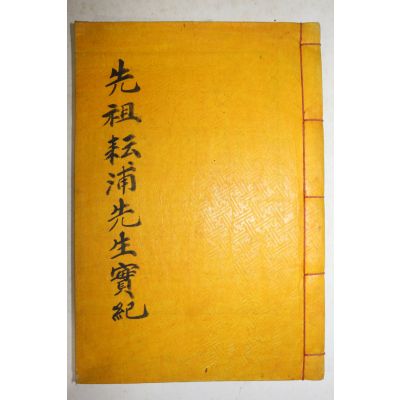 先祖耘浦先生寶紀